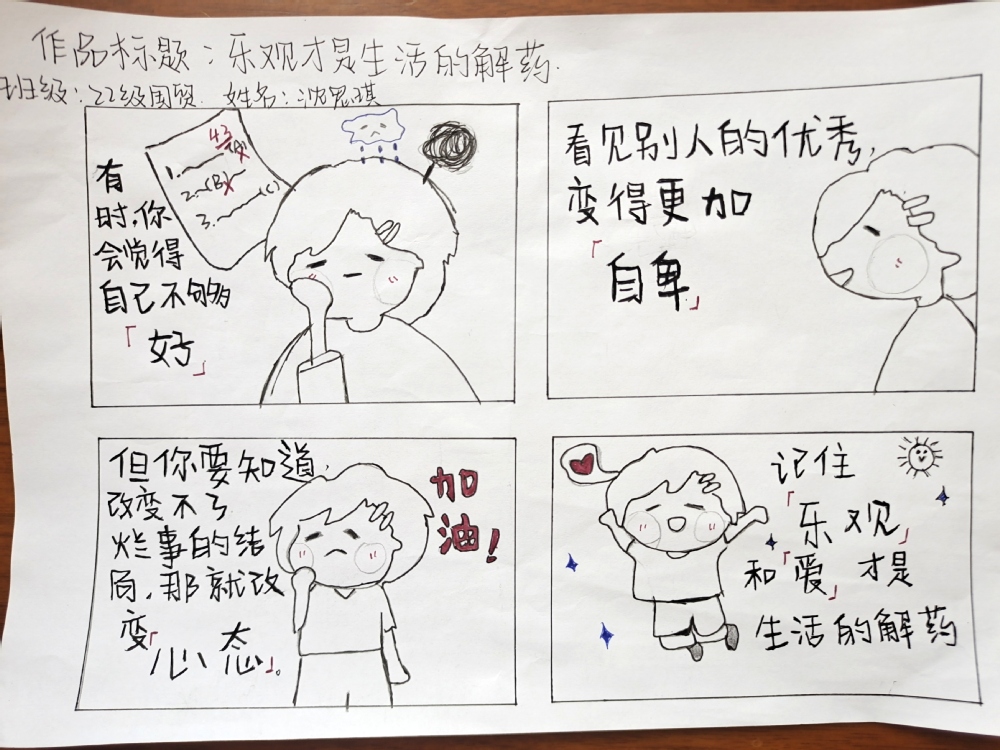 作品标题：乐观才是生活的解药.
班级：22级国贸 姓名：沈思琪
43
1. (A)
2. (B)
3. (C)
有
时，你
会觉得
自己不够
「好」
看见别人的优秀，
变得更加
「自卑」
但你要知道，
改变不了
烂事的结
局，那就改
变「心态」。
加
油！
记住
「乐观」
和「爱」才是
生活的解药